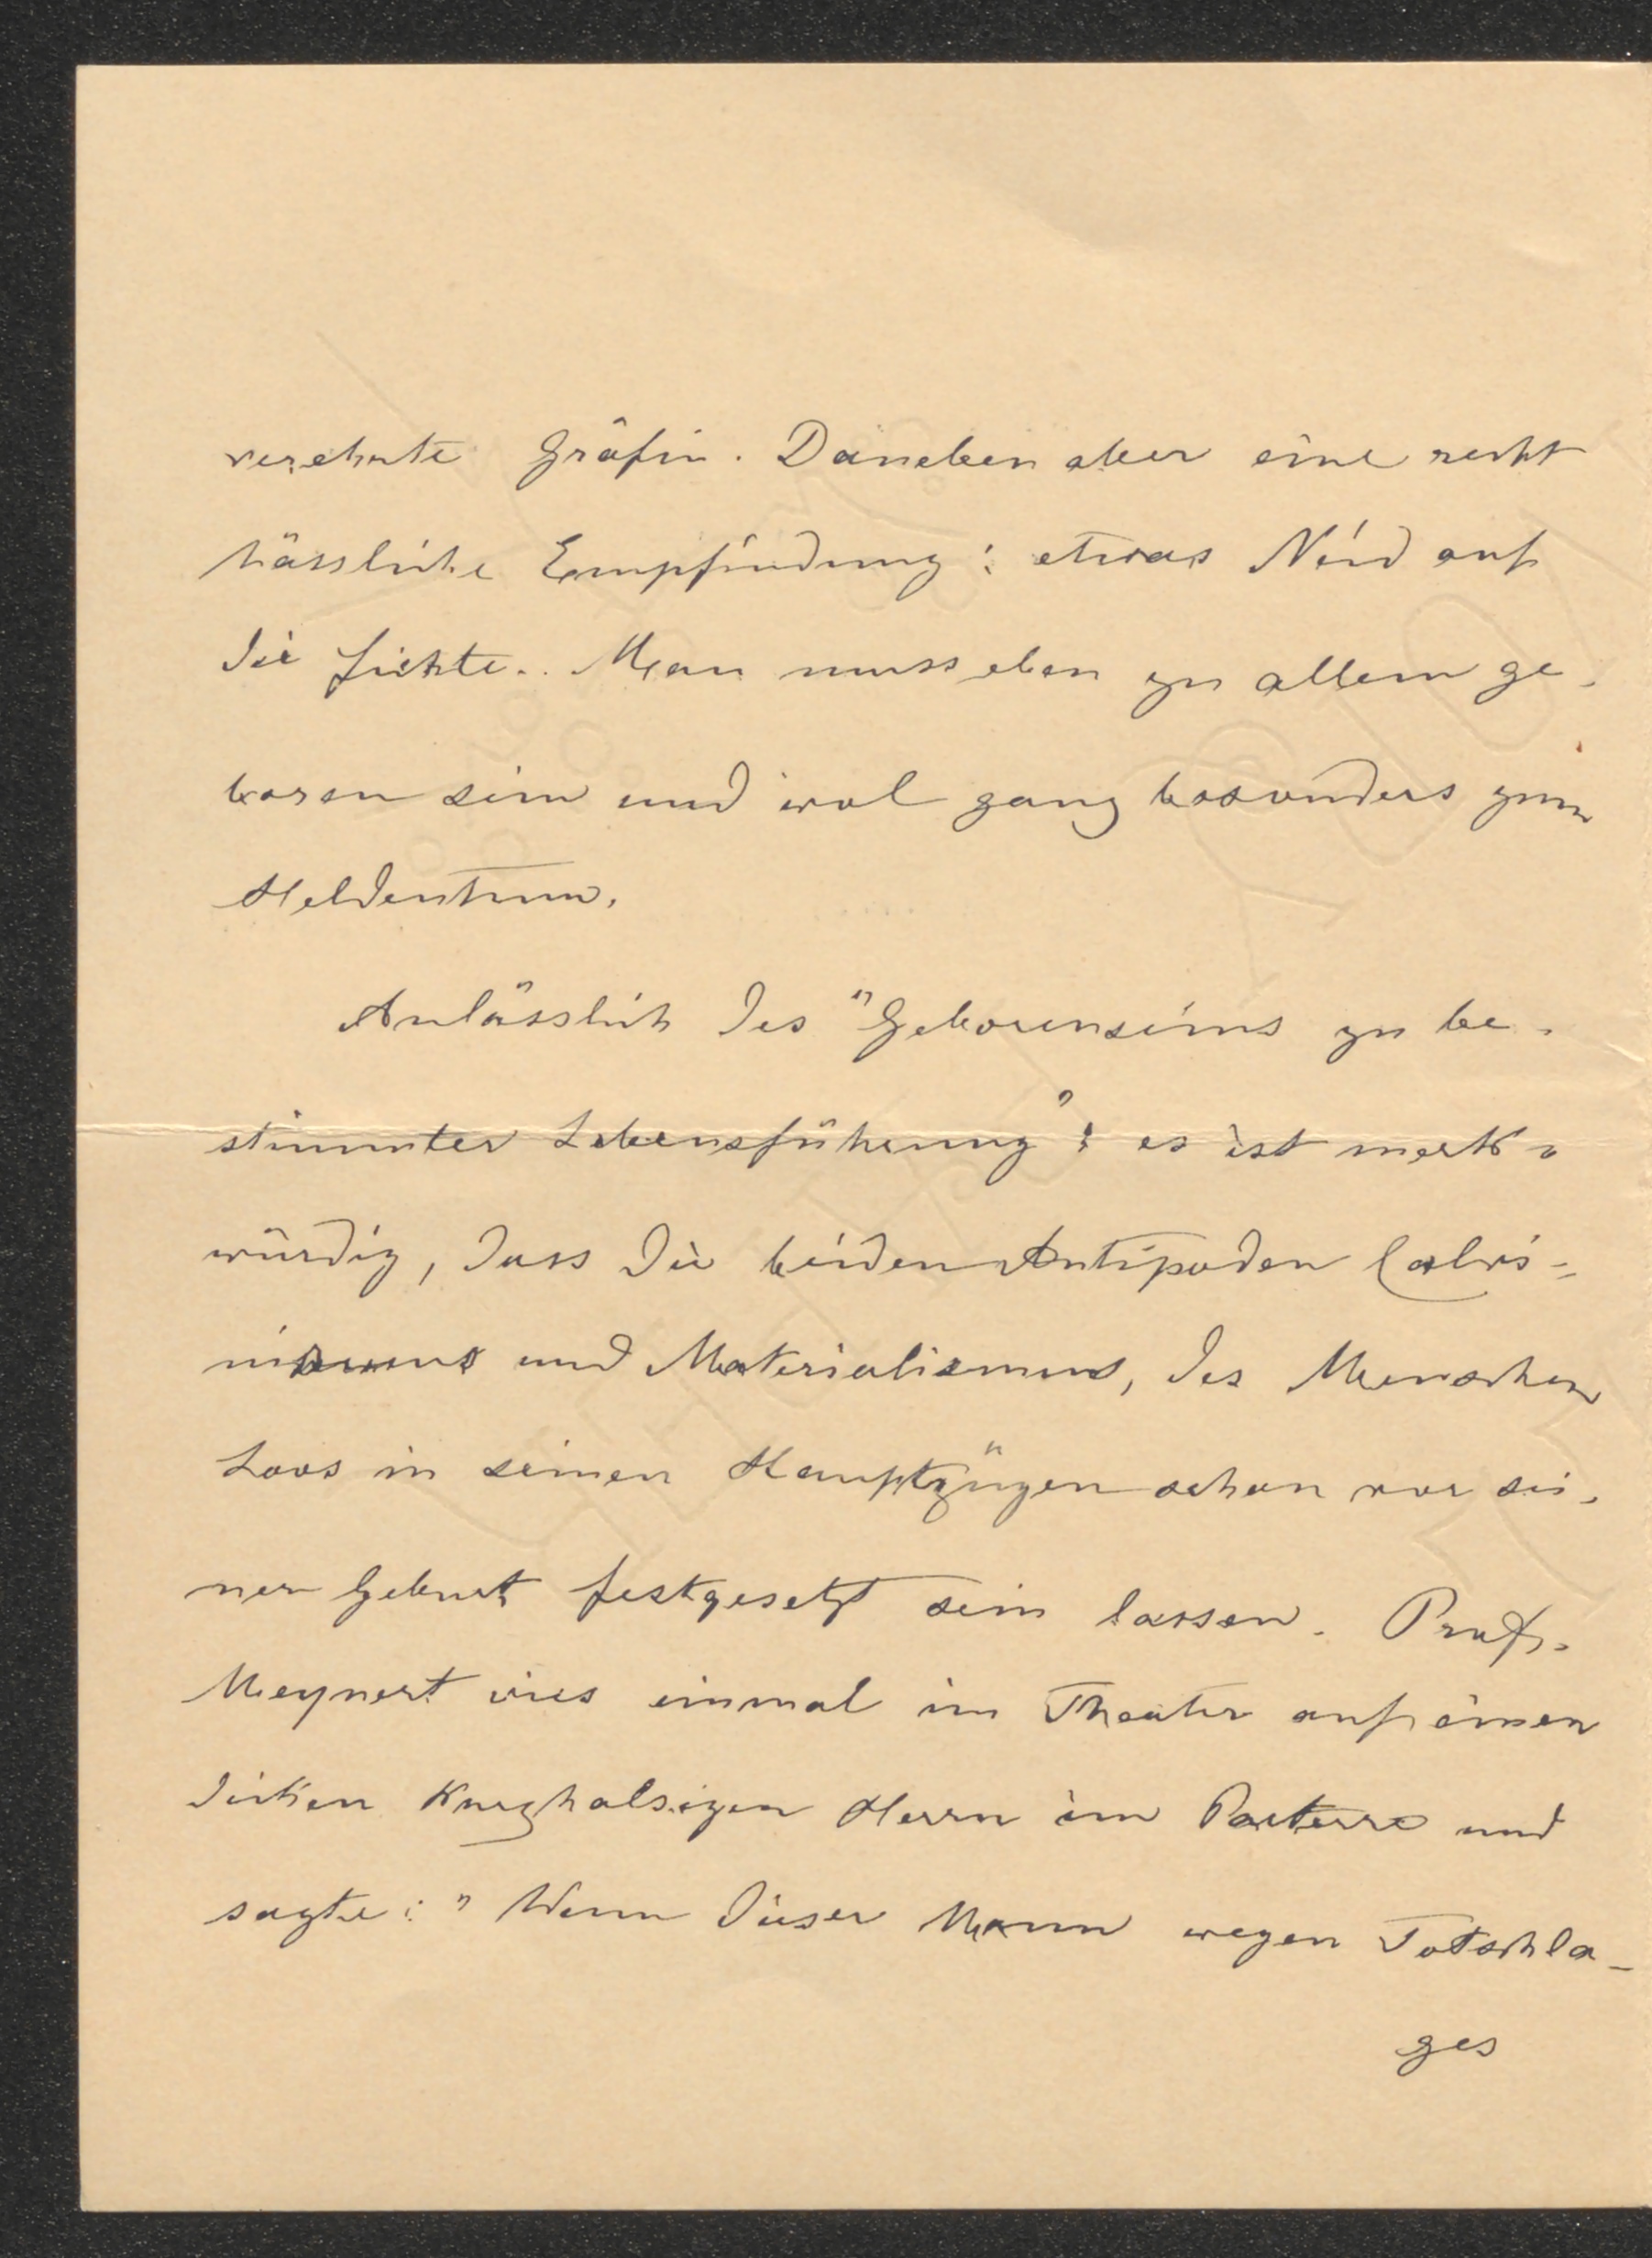 verehrte Gräfin. Daneben aber eine recht
hässliche Empfindung: etwas Neid auf
die Fichte.. Man muss eben zu allem ge-
boren sein und wol ganz besonders zum
Heldentum.
Anlässlich des "Geborenseins zu be-
stimmter Lebensführung": es ist merk-
würdig, dass die beiden Antipoden Calvi-
nismus und Materialismus, des Menschen
Loos in seinen Hauptzügen schon vor sei-
ner Geburt festgesetzt sein lassen. Prof.
Meynert wies einmal im Theater auf einen
dicken kurzhalsigen Herrn im Parterre und
sagte: "Wenn dieser Mann wegen Totschla-
ges